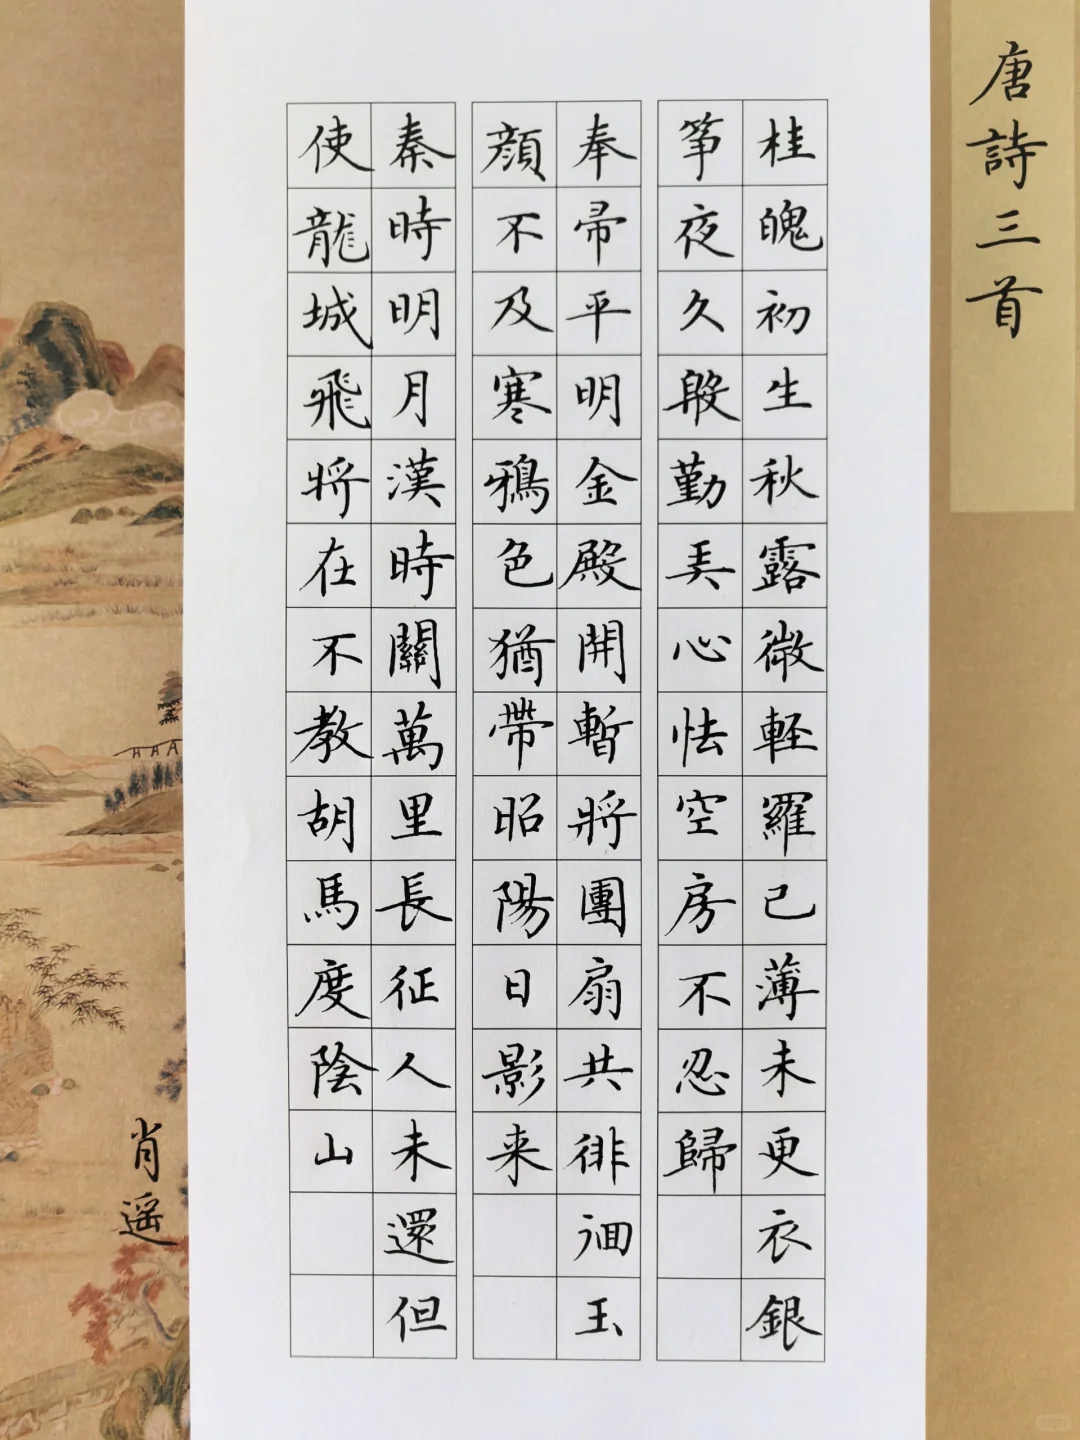 唐詩三首
桂魄初生秋露微輕羅已薄未更衣銀
筝夜久殷勤弄心怯空房不忍歸
奉帚平明金殿開暫將團扇共徘徊玉
顔不及寒鴉色猶帶昭陽日影来
秦時明月漢時關萬里長征人未還但
使龍城飛將在不教胡馬度陰山
肖遥